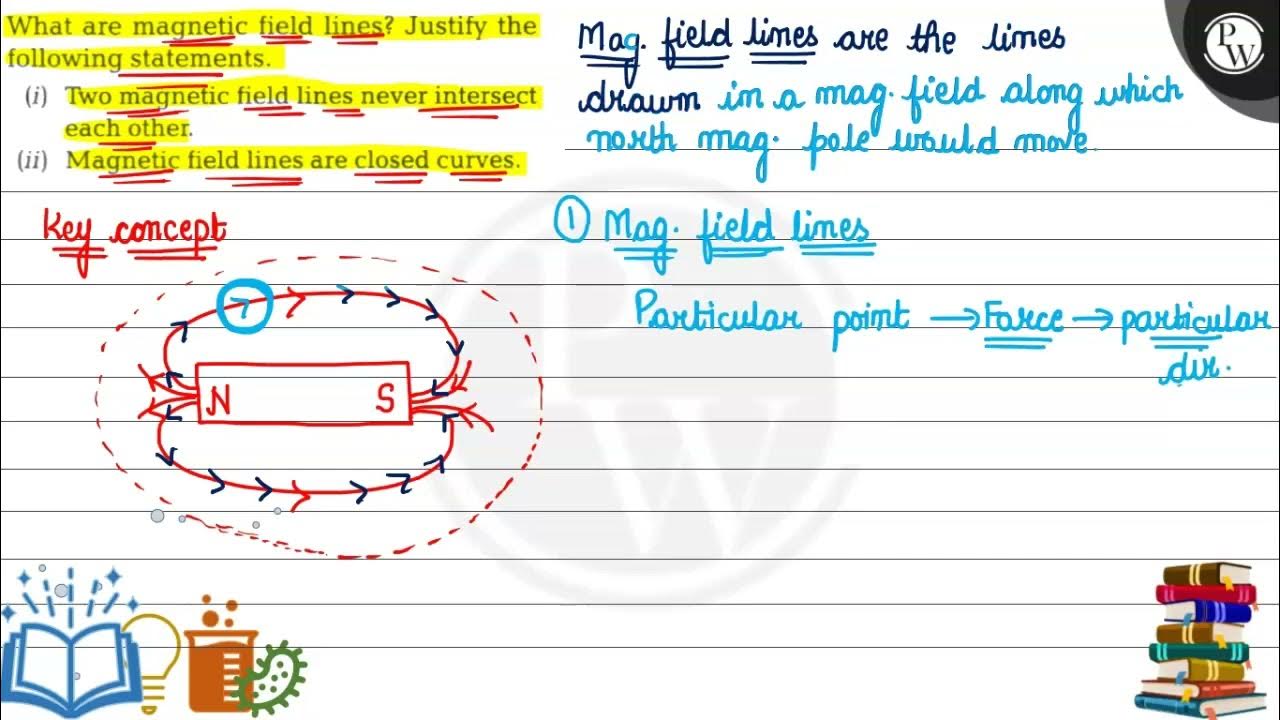 What are magnetic field lines? Justify the
following statements.
(i) Two magnetic field lines never intersect
each other.
(ii) Magnetic field lines are closed curves.
Mag. field lines are the lines
drawn in a mag. field along which
north mag. pole would move.
PW
Key concept
N S
① Mag. field lines
Particular point → Force → particular
dir.
PW